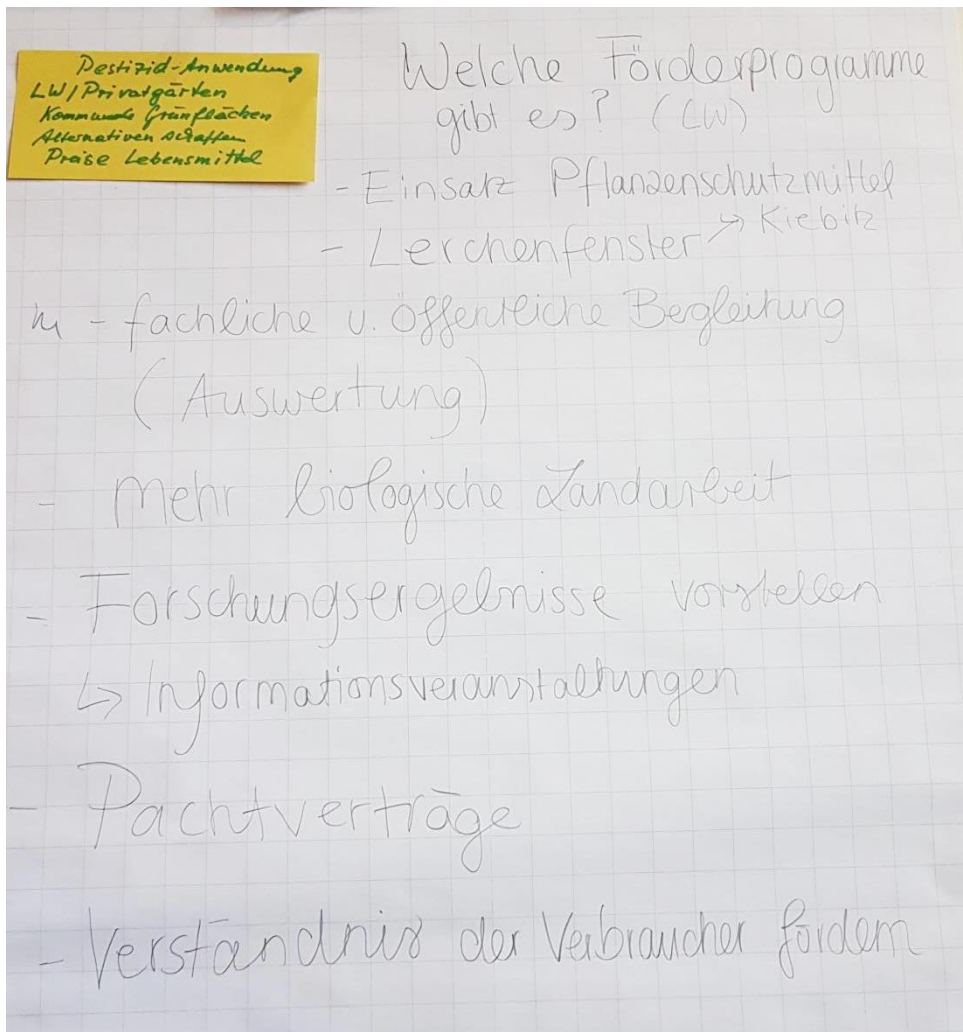 Pestizid-Anwendung
LW/Privatgärten
Kommunale Grünflächen
Alternativen schaffen
Preise Lebensmittel
Welche Förderprogramme
gibt es? (LW)
- Einsatz Pflanzenschutzmittel
- Lerchenfenster → Kiebitz
- fachliche u. öffentliche Begleitung
(Auswertung)
- mehr biologische Landarbeit
- Forschungsergebnisse vorstellen
↳ Informationsveranstaltungen
- Pachtverträge
- Verständnis der Verbraucher fördern